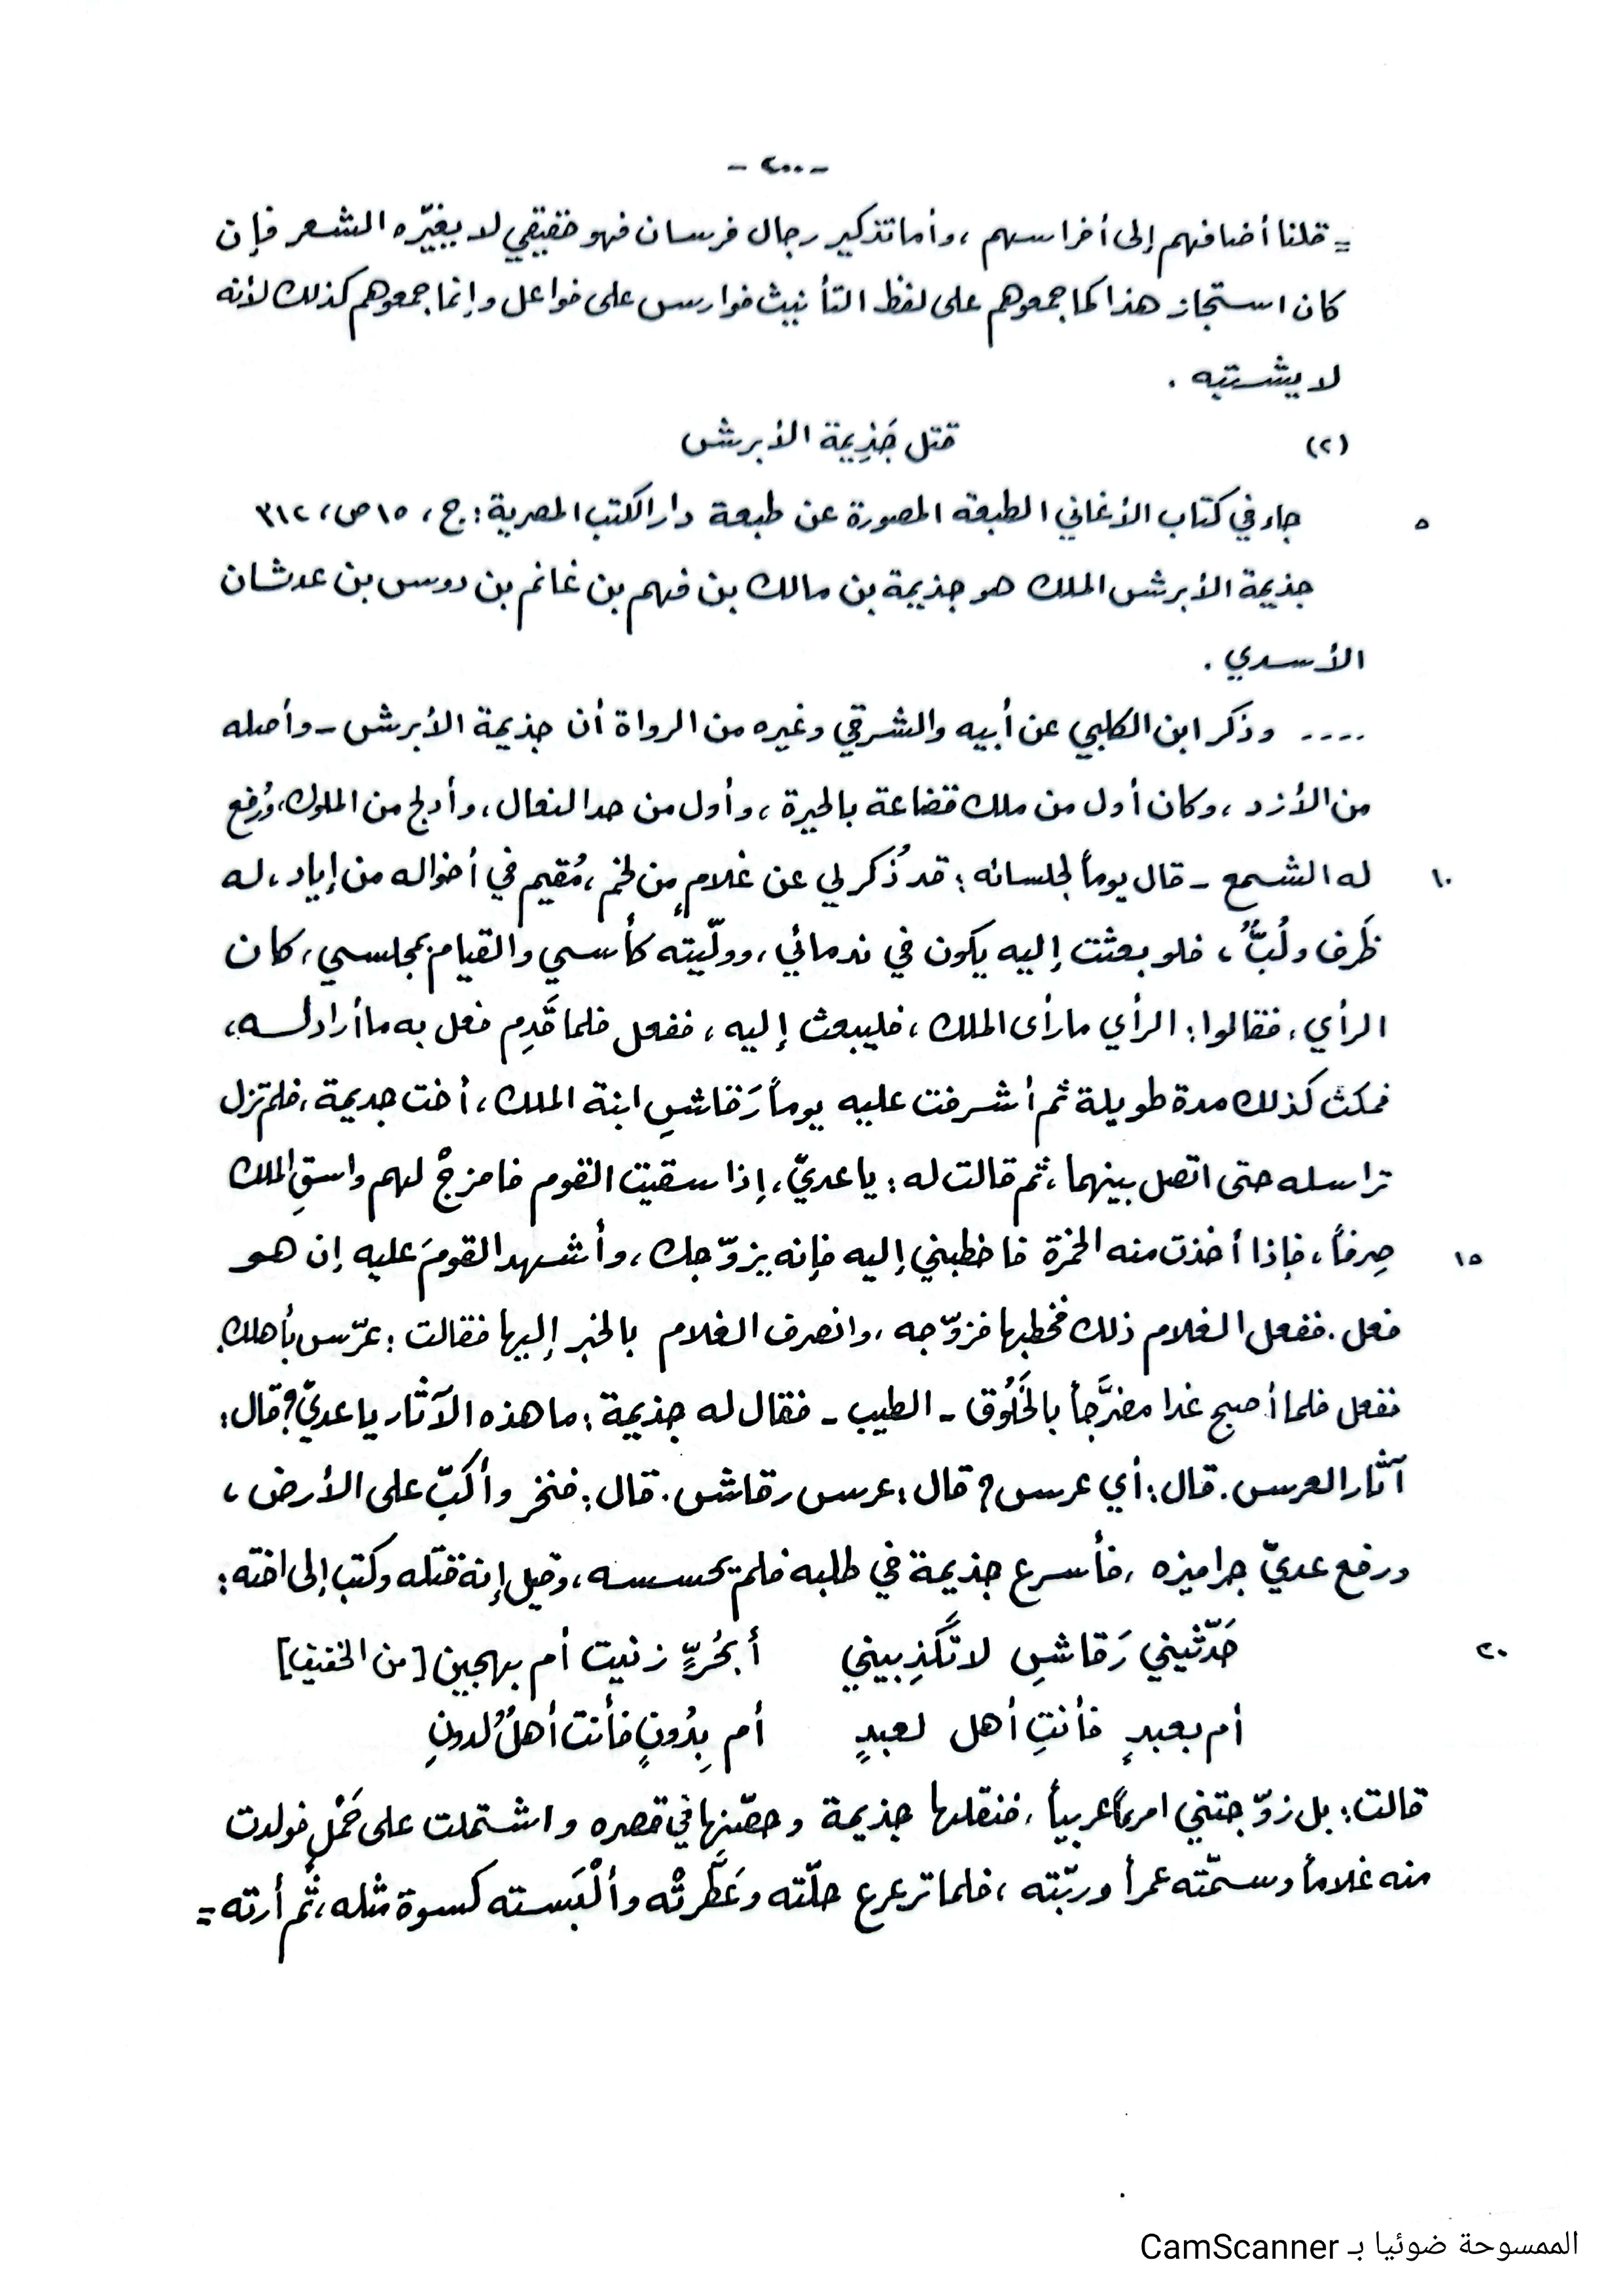 - ٢٠٠ -
= قلنا أضافهم إلى أفراسهم ، وأما تذكير رجال فرسان فهو حقيقي لا يغيّره الشعر فإن
كان استجاز هذا كما جمعوهم على لفظ التأنيث فوارس على فواعل وإنما جمعوهم كذلك لأنه
لا يشتبه .
(٢) قتل جَذِيمة الأبرش
٥ جاء في كتاب الأغاني الطبعة المصورة عن طبعة دار الكتب المصرية : ج ، ١٥ ص ، ٣١٢
جذيمة الأبرش الملك هو جذيمة بن مالك بن فهم بن غانم بن دوس بن عدشان
الأسدي .
.... وذكر ابن الكلبي عن أبيه والشرقي وغيره من الرواة أن جذيمة الأبرش - وأصله
من الأزد ، وكان أول من ملك قضاعة بالحيرة ، وأول من حدا النعال ، وأدلج من الملوك، ورُفع
١٠ له الشمع - قال يوماً لجلسائه : قد ذُكر لي عن غلامٍ من لخم ، مُقيم في أخواله من إياد ، له
ظَرف ولُبٌّ ، فلو بعثت إليه يكون في ندمائي ، وولّيته كأسي والقيام بمجلسي ، كان
الرأي ، فقالوا : الرأي ما رأى الملك ، فليبعث إليه ، ففعل فلما قَدِم فعل به ما أراد له ،
فمكث كذلك مدة طويلة ثم أشرفت عليه يوماً رَقاشِ ابنة الملك ، أخت جديمة ، فلم تزل
تراسله حتى اتصل بينهما ، ثم قالت له : يا عديّ ، إذا سقيت القوم فامزجْ لهم واسقِ الملك
١٥ صِرفاً ، فإذا أخذت منه الخمرة فاخطبني إليه فإنه يزوّجك ، وأشهد القومَ عليه إن هو
فعل . ففعل الغلام ذلك فخطبها فزوّجه ، وانصرف الغلام بالخبر إليها فقالت : عرّس بأهلك.
ففعل فلما أصبح غدا مضرَّجاً بالخَلُوق - الطيب - فقال له جذيمة : ما هذه الآثار يا عديّ؟ قال :
آثار العرس . قال : أي عرس ؟ قال : عرس رقاش . قال : فنخر وأكبّ على الأرض ،
ورفع عديّ جراميزه ، فأسرع جذيمة في طلبه فلم يحسسه ، وقيل إنه قتله وكتب إلى اخته :
٢٠ حَدّثيني رَقاشِ لا تَكْذِبيني أبحُرٍّ زنيت أم بهجين [من الخفيف]
أم بعبدٍ فأنتِ أهل لعبدٍ أم بِدُونٍ فأنت أهلٌ لدونِ
قالت : بل زوّجتني امرءاً عربياً ، فنقلها جذيمة وحصّنها في قصره واشتملت على حَمْلٍ فولدت
منه غلاماً وسمّته عمرأ وربّته ، فلما ترعرع حلّته وعَطّرتْه وألْبَسته كسوة مثله ، ثم أرته =
الممسوحة ضوئيا بـ CamScanner